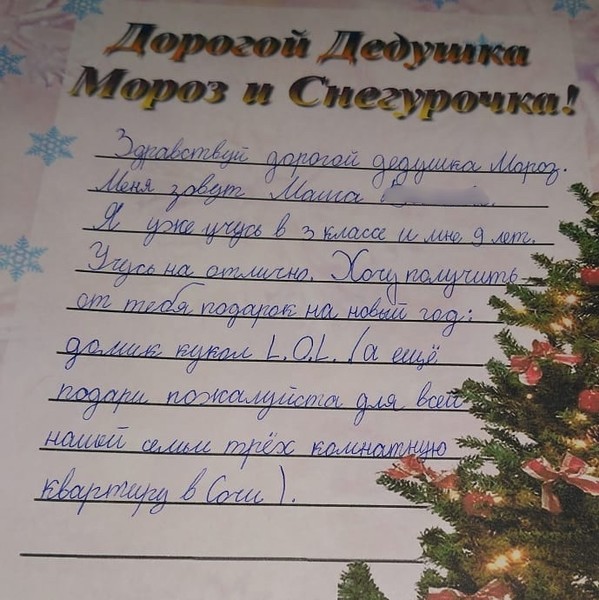 Дорогой Дедушка
Мороз и Снегурочка!
Здравствуй дорогой дедушка Мороз.
Меня зовут Маша
Я уже учусь в 3 классе и мне 9 лет.
Учусь на отлично. Хочу получить
от тебя подарок на новый год:
домик кукол L.O.L. (а ещё
подари пожалуйста для всей
нашей семьи трёх комнатную
квартиру в Сочи).